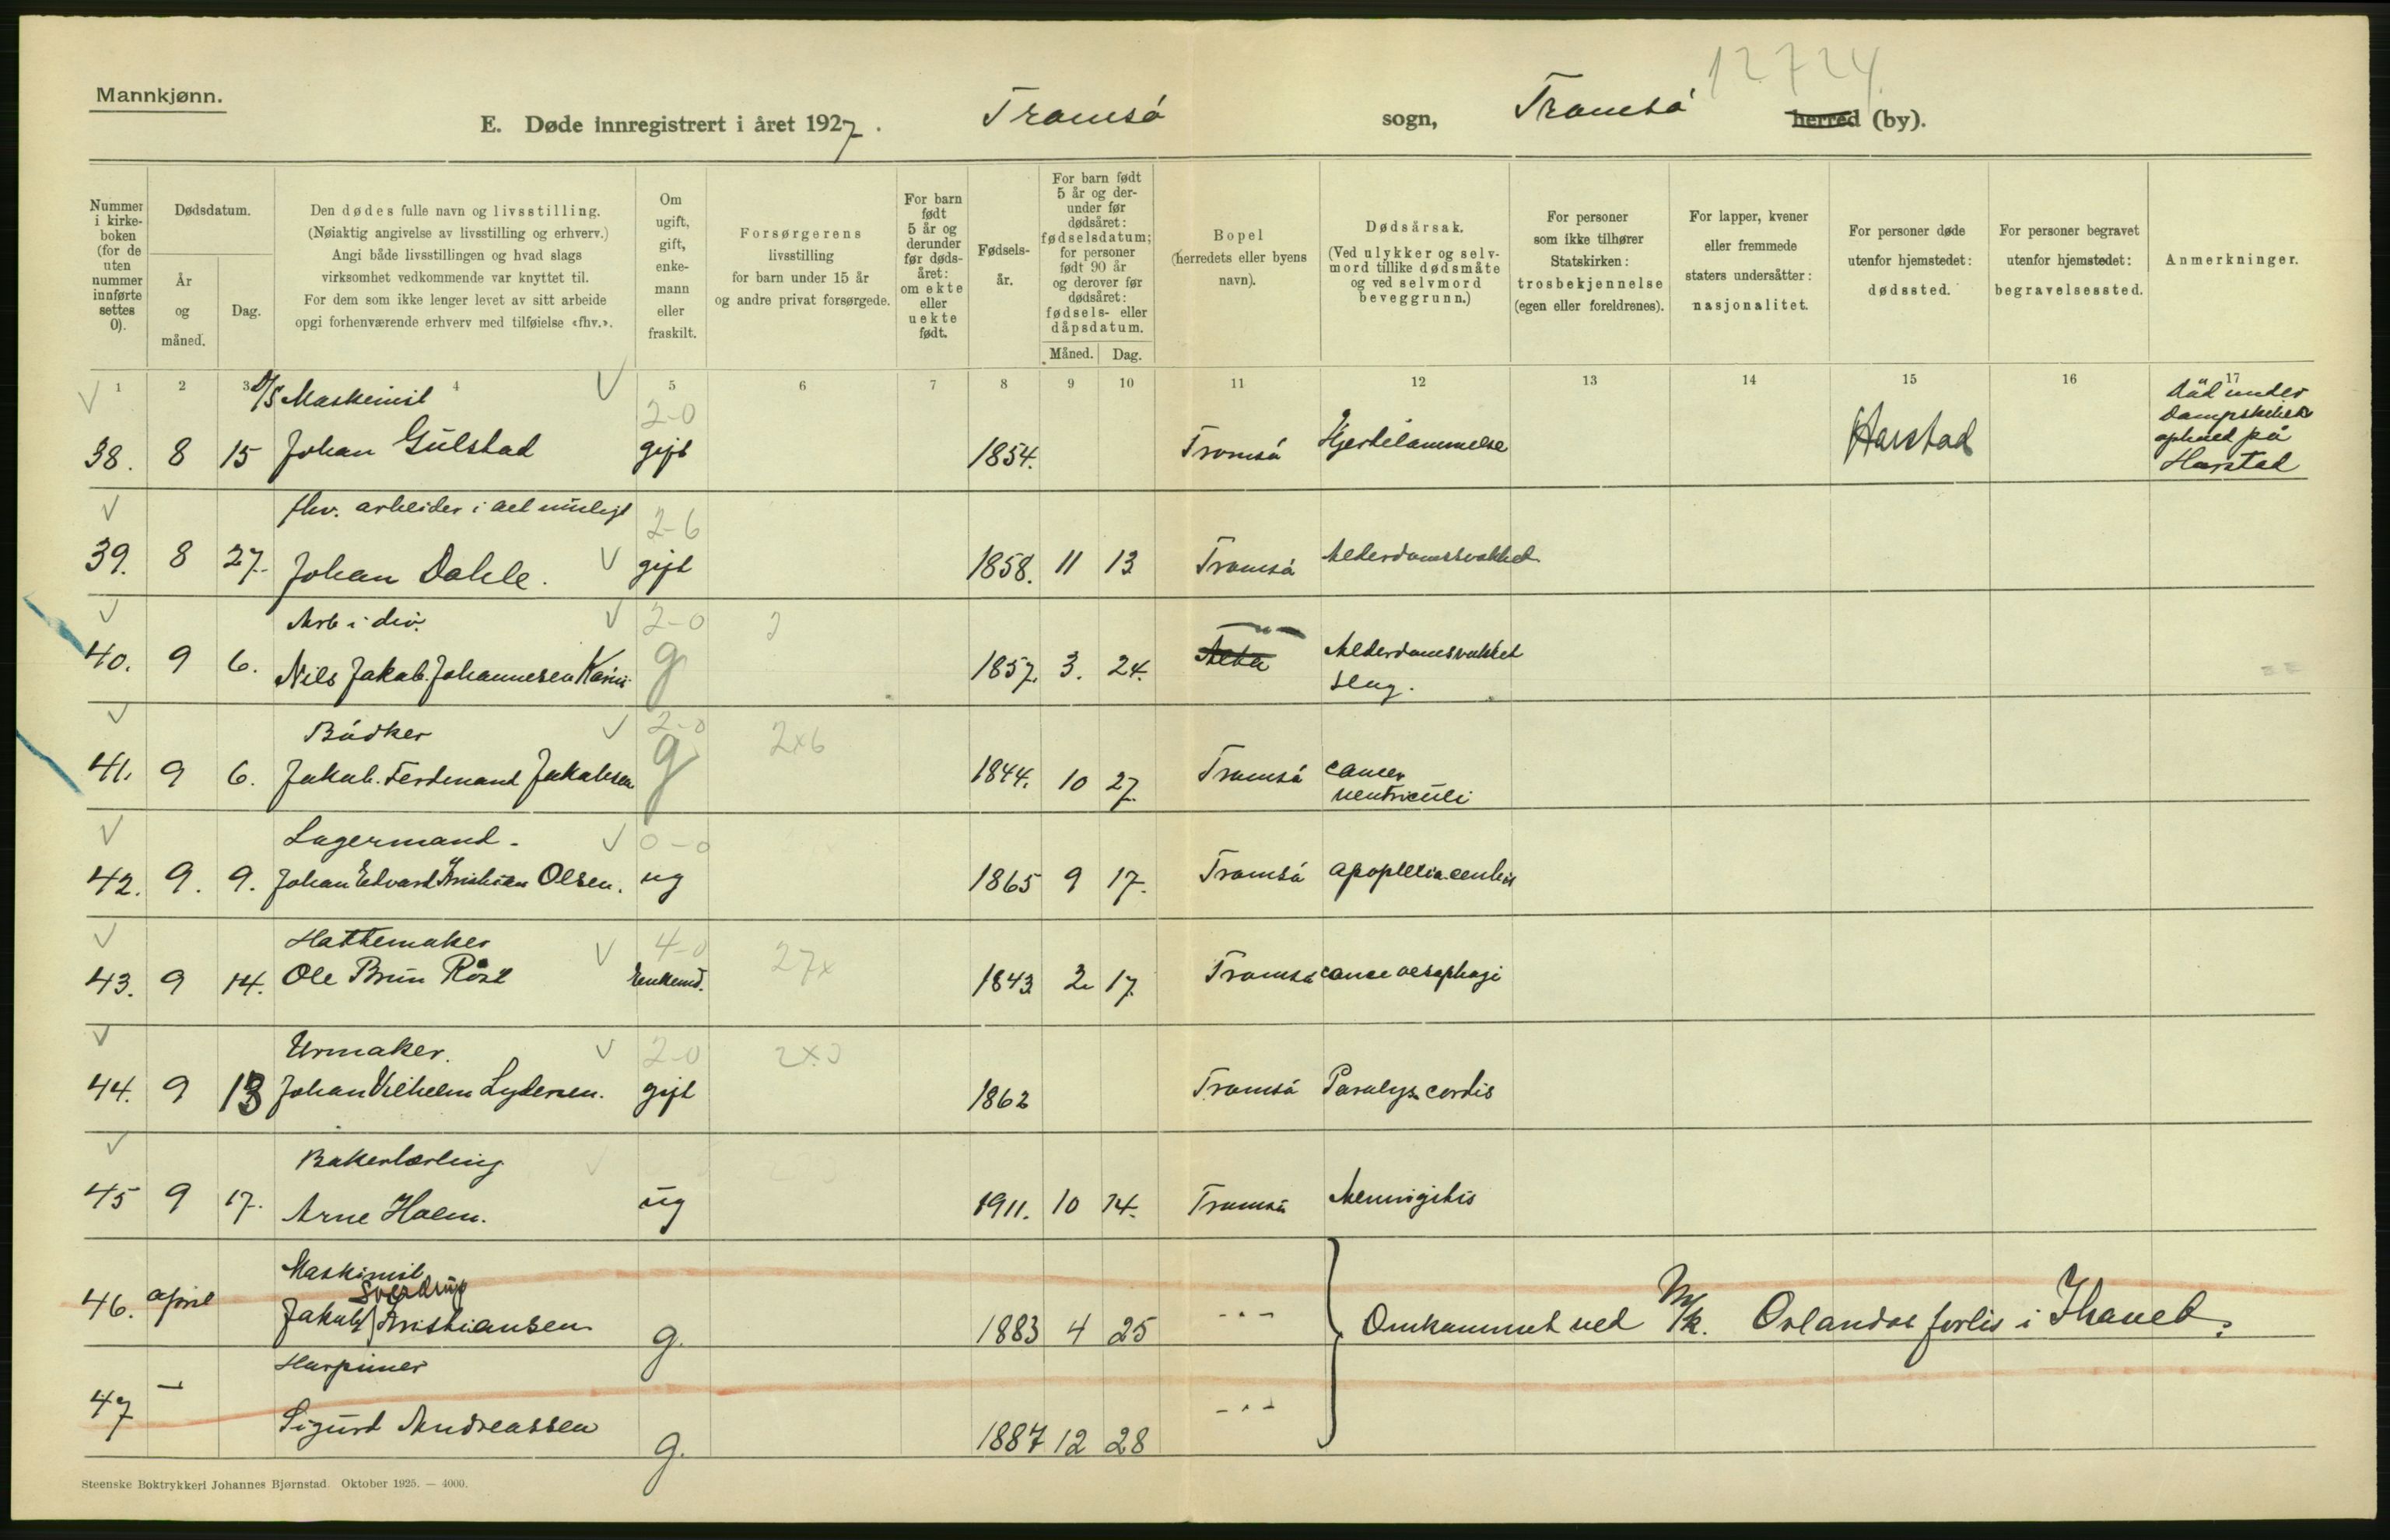 12724
Mannkjønn.
E. Døde innregistrert i året 1927. Tromsö sogn, Tromsö herred (by).
Nummer i kirkeboken (for de uten nummer innførte settes 0).
Dødsdatum.
År og måned.
Dag.
Den dødes fulle navn og livsstilling.
(Nøiaktig angivelse av livsstilling og erhverv.)
Angi både livsstillingen og hvad slags
virksomhet vedkommende var knyttet til.
For dem som ikke lenger levet av sitt arbeide
opgi forhenværende erhverv med tilføielse «fhv.».
Om ugift, gift, enkemann eller fraskilt.
Forsørgerens
livsstilling
for barn under 15 år
og andre privat forsørgede.
For barn født 5 år og derunder før dødsåret: om ekte eller uekte født.
Fødselsår.
For barn født 5 år og derunder før dødsåret: fødselsdatum; for personer født 90 år og derover før dødsåret: fødsels- eller dåpsdatum.
Måned. Dag.
Bopel
(herredets eller byens
navn).
Dødsårsak.
(Ved ulykker og selvmord tillike dødsmåte og ved selvmord beveggrunn.)
For personer
som ikke tilhører
Statskirken:
trosbekjennelse
(egen eller foreldrenes).
For lapper, kvener
eller fremmede
staters undersåtter:
nasjonalitet.
For personer døde
utenfor hjemstedet:
dødssted.
For personer begravet
utenfor hjemstedet:
begravelsessted.
Anmerkninger.
1 2 3 4 5 6 7 8 9 10 11 12 13 14 15 16 17
D/S Maskinist 2-0 Död under
Dampskibets
38. 8 15 Johan Gülstad gift 1854. Tromsö Hjertelammelse Harstad ophold på
Harstad
fhv. arbeider i alt muligt 2-6
39. 8 27. Johan Dahle. gift 1858. 11 13 Tromsö Alderdomssvakhet
Arb i div. 2-0 2
40. 9 6. Nils Jakob Johannesen g 1857. 3. 24. -"- Alderdomsvakhet
slag.
Bödker 2-0 2x6
41. 9 6. Jakob. Ferdinand Jakobsen g 1844. 10 27. Tromsö cancer
ventriculi
Lagermand. 0-0
42. 9. 9. Johan Edvard Kristian Olsen. ug 1865 9 17. Tromsö
Hattemaker 4-0 27x
43. 9 14. Ole Brün Röst Enkemd. 1843 2 17. Tromsö cance oesophagi
Urmaker. 2-0
44. 9 13 Johan Vilhelm Lydersen. gift 1862 Tromsö Paralys. cordis
Bakerlærling
45 9 17. Arne Holm. ug 1911. 10 14. Tromsö Menningitis
Maskinist
Sverdrup
46. april Jakob Kristiansen g. 1883 4 25 -"- Omkommet ved M/k. Orlandos forlis i Ishavet.
Harpuner
47 — Sigurd Andreassen g. 1887 12 28 -"-
Steenske Boktrykkeri Johannes Bjørnstad. Oktober 1925. — 4000.